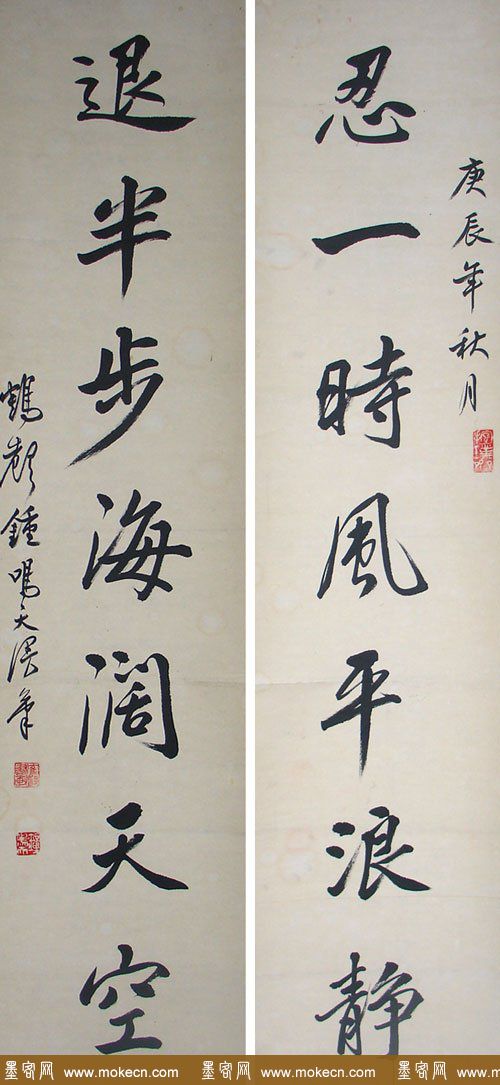 庚辰年秋月
忍一時風平浪静
退半步海阔天空
鍾鳴天漫筆
墨客网 www.mokecn.com 墨客网 www.mokecn.com 墨客网 www.mokecn.com